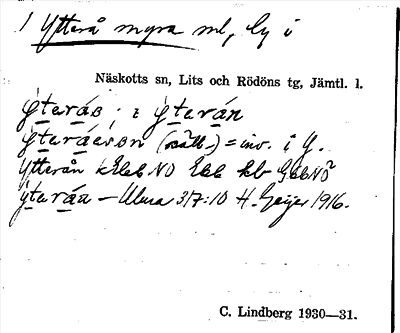 1 Ytterå myra ml, by i
Näskotts sn, Lits och Rödöns tg, Jämtl. l.
ýterás ; i ýterán
ýteráerson (sätt.) = inv. i Y.
Ytterån
ýterán – Ulma 317:10 H. Geijer 1916.
C. Lindberg 1930—31.